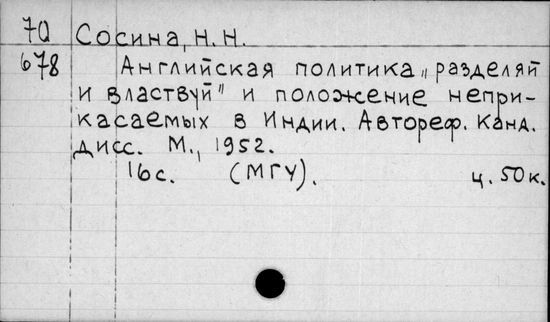 7а Сосина, Н. Н.
678 Английская политика „разделяй
и властвуй" и положение непри-
касаемых в Индии. Автореф. Канд.
дисс. М., 1952.
16с. (МГУ). ц. 50к.